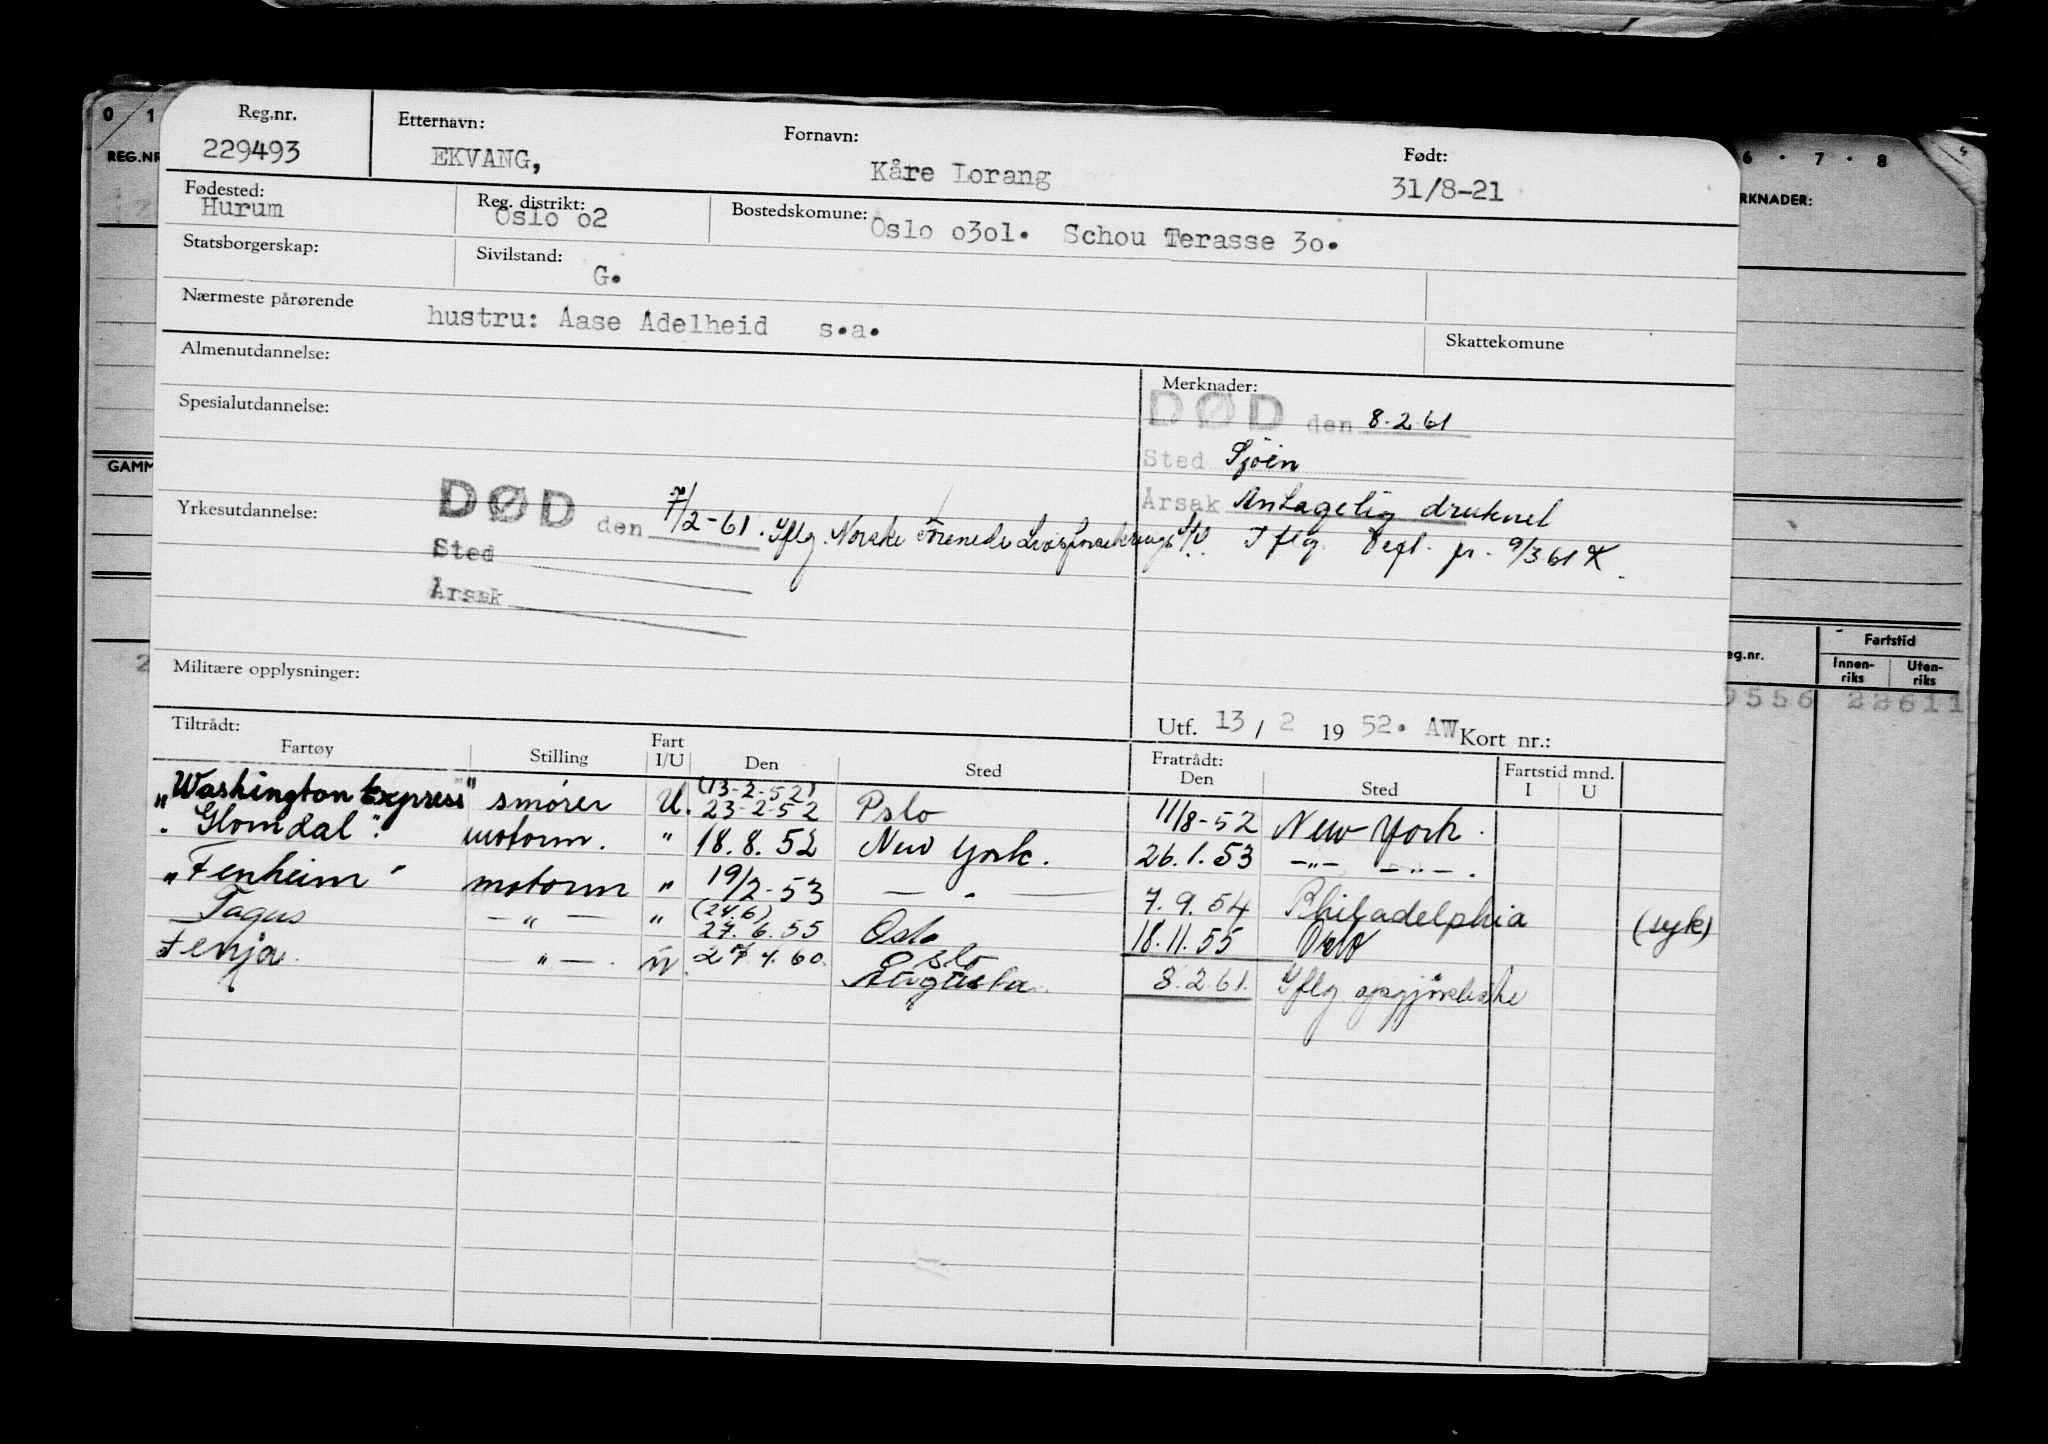 0 1
REG.NR
GAMM
6 · 7 · 8
RKNADER:
eg.nr.
Fartstid
Innen-riks Uten-riks
9556 22611
Reg.nr. Etternavn: Fornavn: Født:
229493 EKVANG, Kåre Lorang 31/8-21
Fødested: Reg. distrikt: Bostedskomune:
Hurum Oslo o2 Oslo o3o1. Schou Terasse 3o.
Statsborgerskap: Sivilstand:
G.
Nærmeste pårørende
hustru: Aase Adelheid s.a.
Skattekomune
Almenutdannelse:
Merknader:
DØD den 8.2.61
Spesialutdannelse:
Sted Sjøen
Årsak Antagelig druknet
Iflg. Dept. pr. 9/3 61 K.
Yrkesutdannelse:
DØD den 7/2-61. Iflg. Norske Forenede Livsforsikrings
Sted
Årsak
Militære opplysninger:
Utf. 13 / 2 19 52. AW Kort nr.:
Tiltrådt: Fratrådt: Fartstid mnd.
Fartøy Stilling Fart I/U Den Sted Den Sted I U
"Washington Express" smører U. (13-2-52) 23-2-52 Oslo 11/8-52 New York.
"Glomdal". motorm. " 18.8.52 New York. 26.1.53 -"- -"-.
"Fenheim" motorm " 19/2-53 — " — 7.9.54 Philadelphia (syk)
Tagus — " — " (24.6) 27.6.55 Oslo 18.11.55 Oslo
Fenja. — " —. U. 27.4.60. Oslo
Augusta. 8.2.61. Iflg